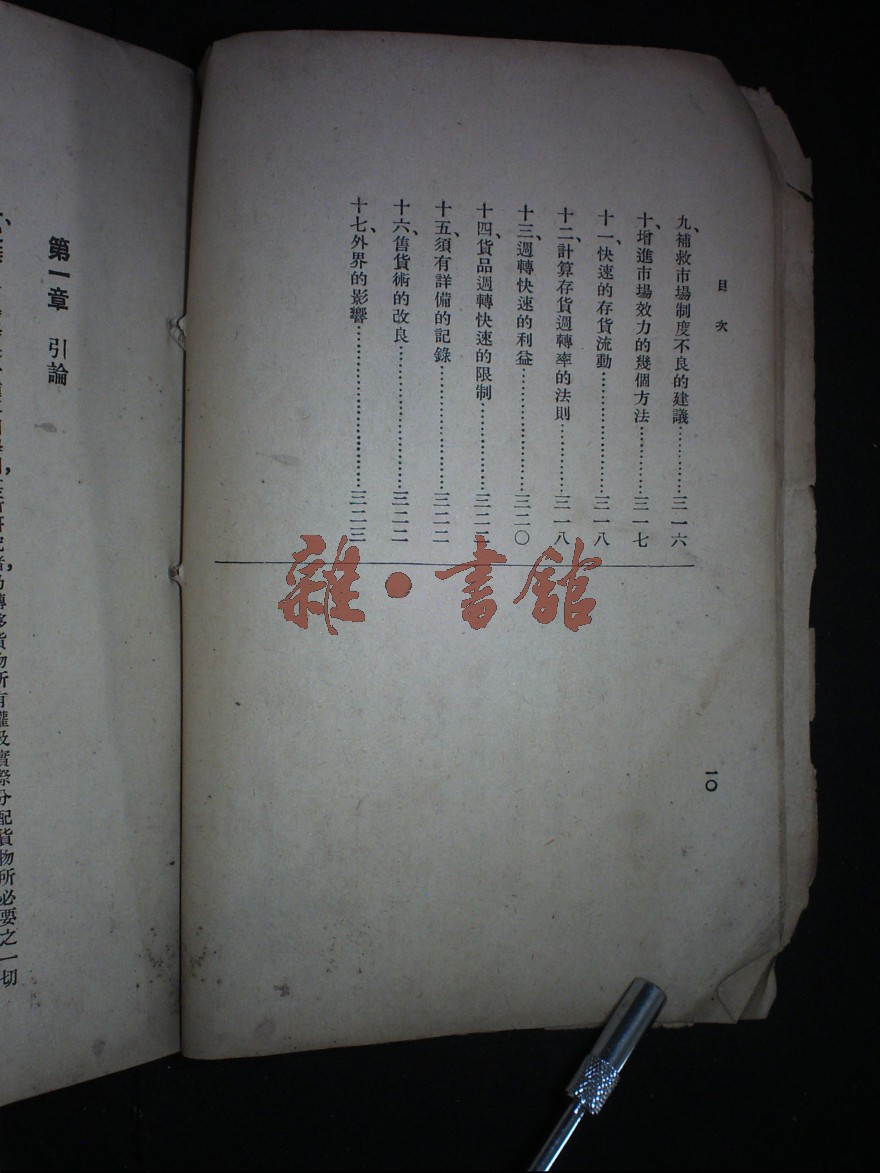 目次
九、補救市場制度不良的建議…………三一六
十、增進市場效力的幾個方法…………三一七
十一、快速的存貨流動…………三一八
十二、計算存貨週轉率的法則…………三一八
十三、週轉快速的利益…………三二〇
十四、貨品週轉快速的限制…………三二
十五、須有詳備的記錄…………三二二
十六、售貨術的改良…………三二二
十七、外界的影響…………三二三
一〇
雜・書館
第一章 引論
轉移貨物所有權及實際分配貨物所必要之一切